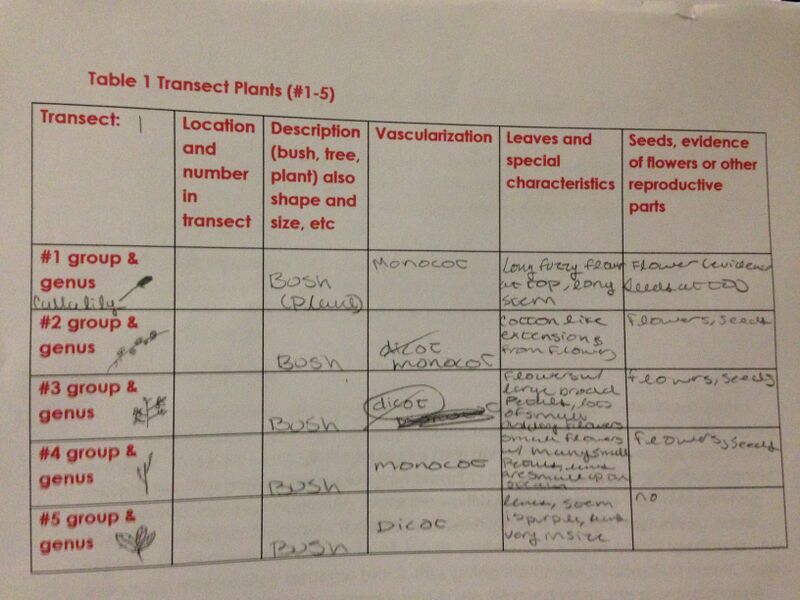 Table 1 Transect Plants (#1-5)
Transect: 1
Location
and
number
in
transect
Description
(bush, tree,
plant) also
shape and
size, etc
Vascularization
Leaves and
special
characteristics
Seeds, evidence
of flowers or other
reproductive
parts
#1 group &
genus
Calla lily
Bush
(plant)
Monocot
Long fuzzy flower
at top, long
stem
Flower (evidence
seeds at top)
#2 group &
genus
Bush
dicot
monocot
cotton like
extensions
from flower
flowers, seeds
#3 group &
genus
Bush
dicot
Flowers w/
large broad
Petals, lots
of small
flowers
flowrs, seeds
#4 group &
genus
Bush
monocot
small flowers
w/ many small
Petals,
are small up on
flowers, seeds
#5 group &
genus
Bush
Dicot
leaves, stem
is purple,
vary in size
no